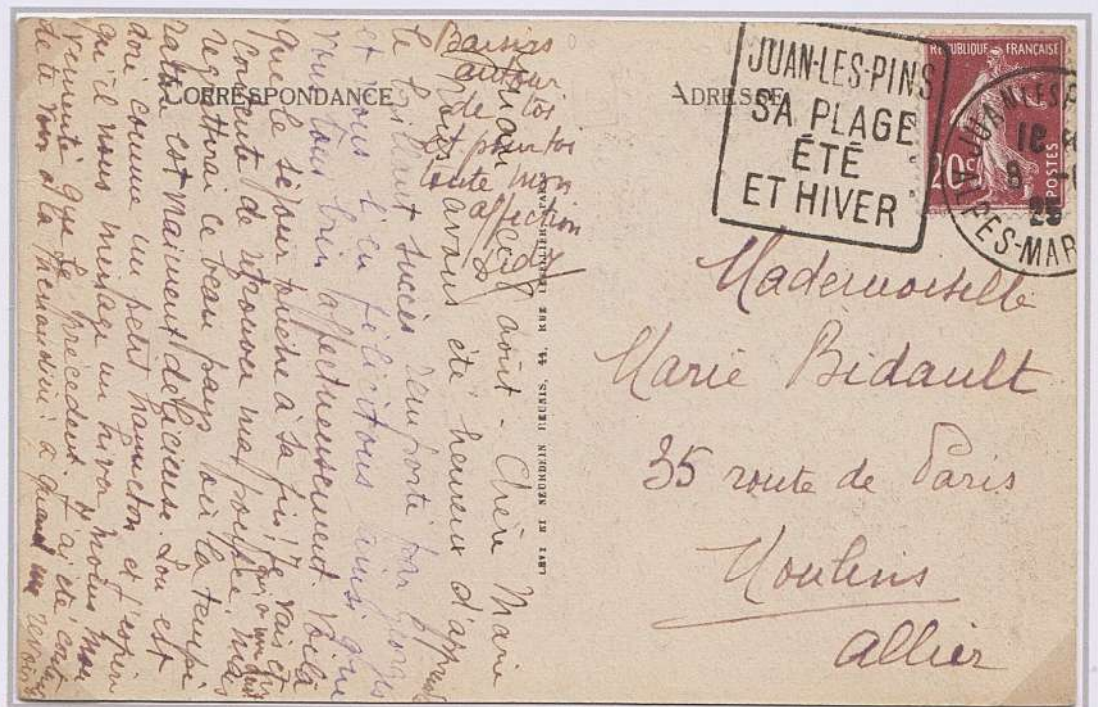 CORRESPONDANCE
ADRESSE
JUAN-LES-PINS
SA PLAGE
ÉTÉ
ET HIVER
RÉPUBLIQUE FRANÇAISE
20c
POSTES
JUAN-LES-P
8
25
ALPES-MAR
Mademoiselle
Marie Bidault
35 route de Paris
Moulins
Allier
LEVY ET NEURDEIN REUNIS, 44, RUE LETELLIER, PARIS
août - Chère Marie
Nous avons été heureux d'apprendre
le brillant succès remporté par Georges
et nous l'en félicitons ainsi que
vous tous bien affectueusement. Voilà
que le séjour touche à sa fin, je vais être
contente de retrouver ma poupée, mais
regretterai ce beau pays où la tempé
rature est vraiment délicieuse. Lou est
doré comme un petit hanneton et j'espère
qu'il nous ménage un hiver moins mou
vementé que le précédent. J'ai été
de te voir à la
Baisers
autour
de toi
et pour toi
toute mon
affection